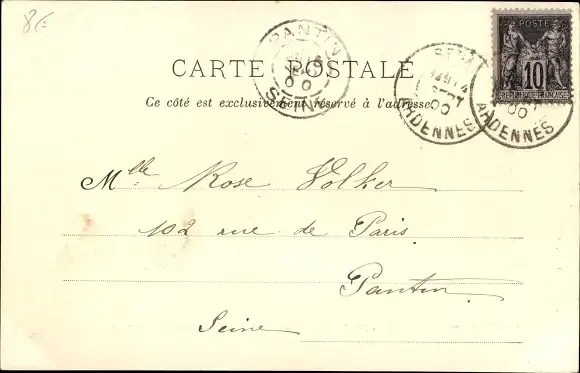 8€
PANTIN
SEINE
POSTE
10
REPUBLIQUE FRANÇAISE
SEPT
00
ARDENNES
ARDENNES
00
CARTE POSTALE
Ce côté est exclusivement réservé à l'adresse
Mlle Rose Volker
102 rue de Paris
Pantin
Seine